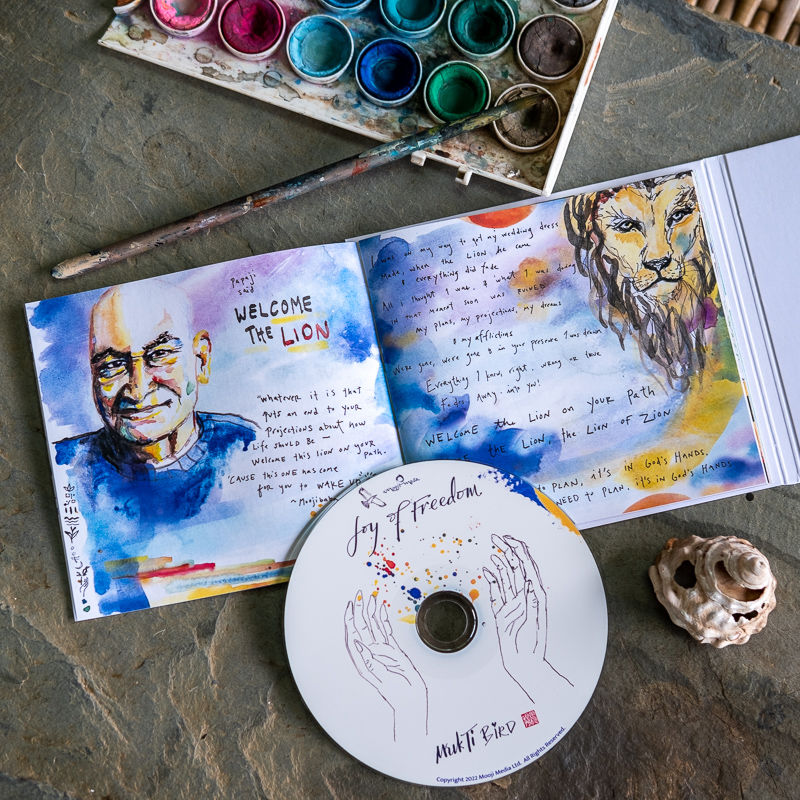 Papaji
said
WELCOME
THE LION
"Whatever it is that
puts an end to your
Projections about how
Life should be —
Welcome this lion on your
path.
'CAUSE this ONE has come
for you to WAKE UP
~ Moojibaba
I was on my way to get my wedding dress
made, when the LION he came
& everything did fade
All I thought I was, & what I was doing
in that moment soon was RUINED
my plans, my projections, my dreams
& my afflictions
were gone & in your presence I was drawn
Everything I heard, right, wrong or true
Fades Away, into you!
WELCOME the LION on your Path
the LION, the Lion of Zion
to PLAN, it's in God's HANDS,
NEED to PLAN, it's in God's HANDS
Joy of Freedom
MUKTI BIRD
Copyright 2022 Mooji Media Ltd. All Rights Reserved.